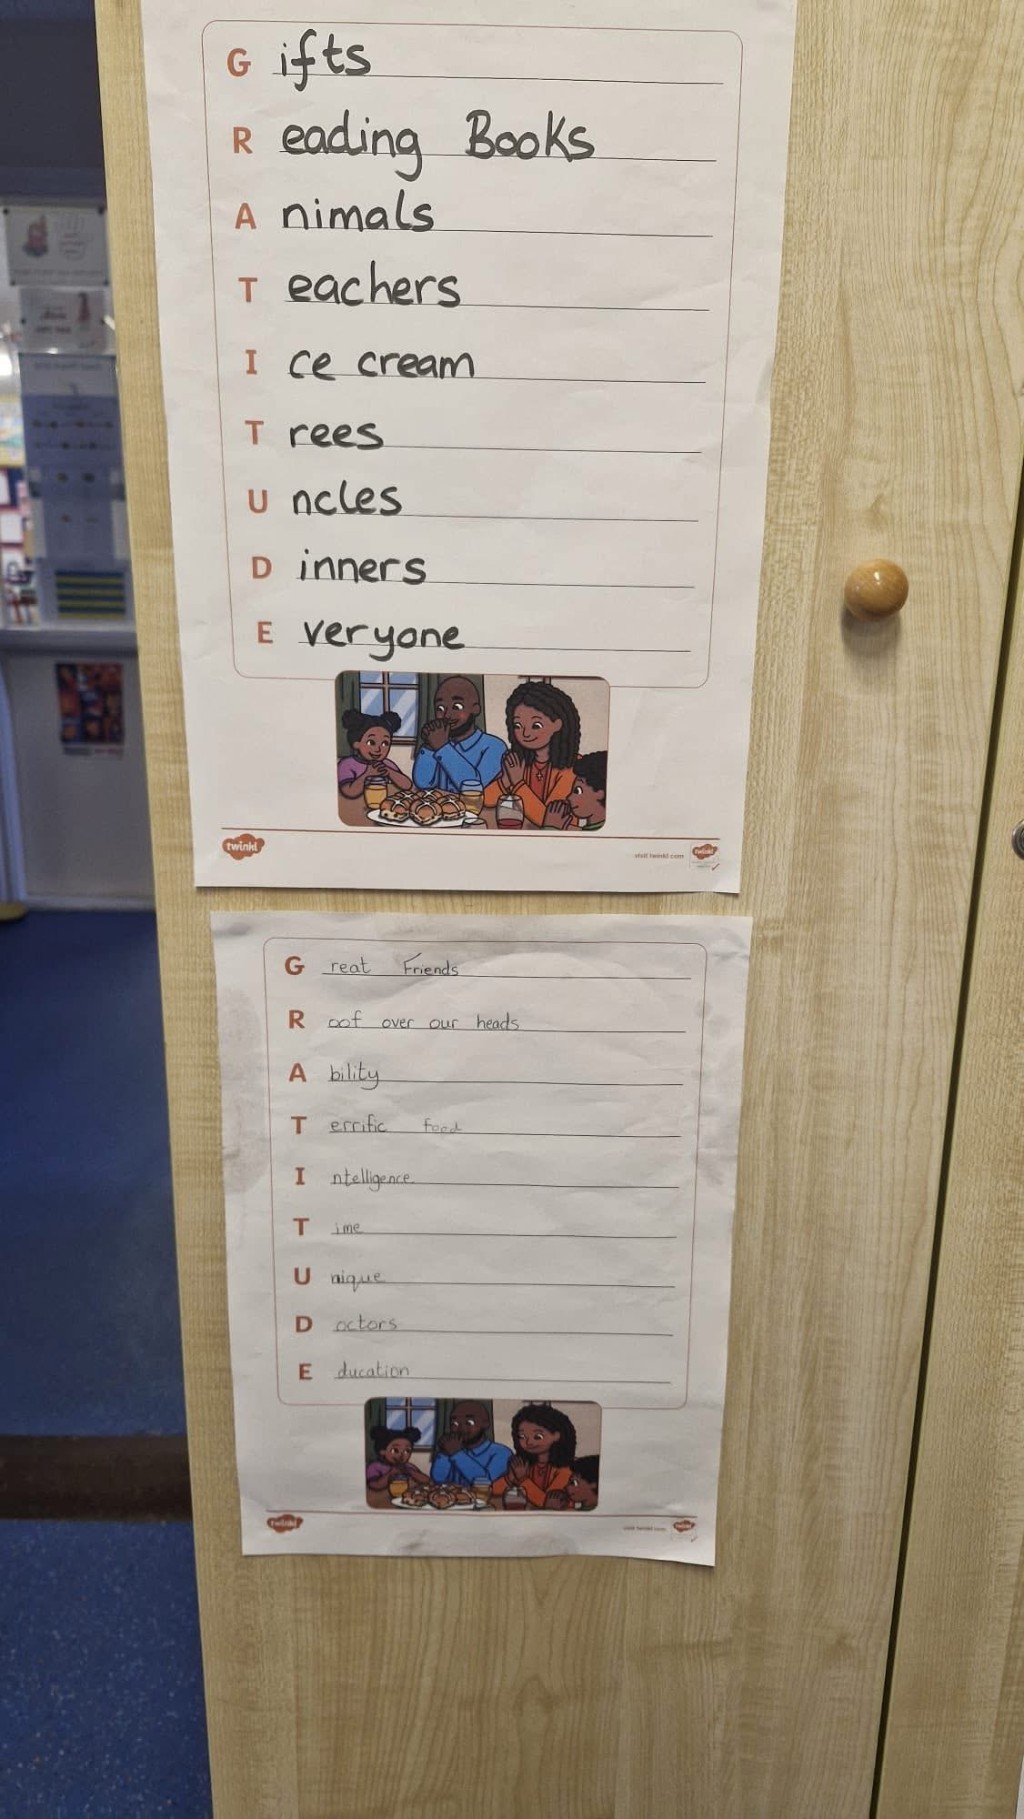 Gifts
Reading Books
Animals
Teachers
Ice cream
Trees
Uncles
Dinners
Everyone
twinkl
visit twinkl.com
twinkl
Great Friends
Roof over our heads
Ability
Terrific food
Intelligence
Time
Unique
Doctors
Education
twinkl
visit twinkl.com
twinkl